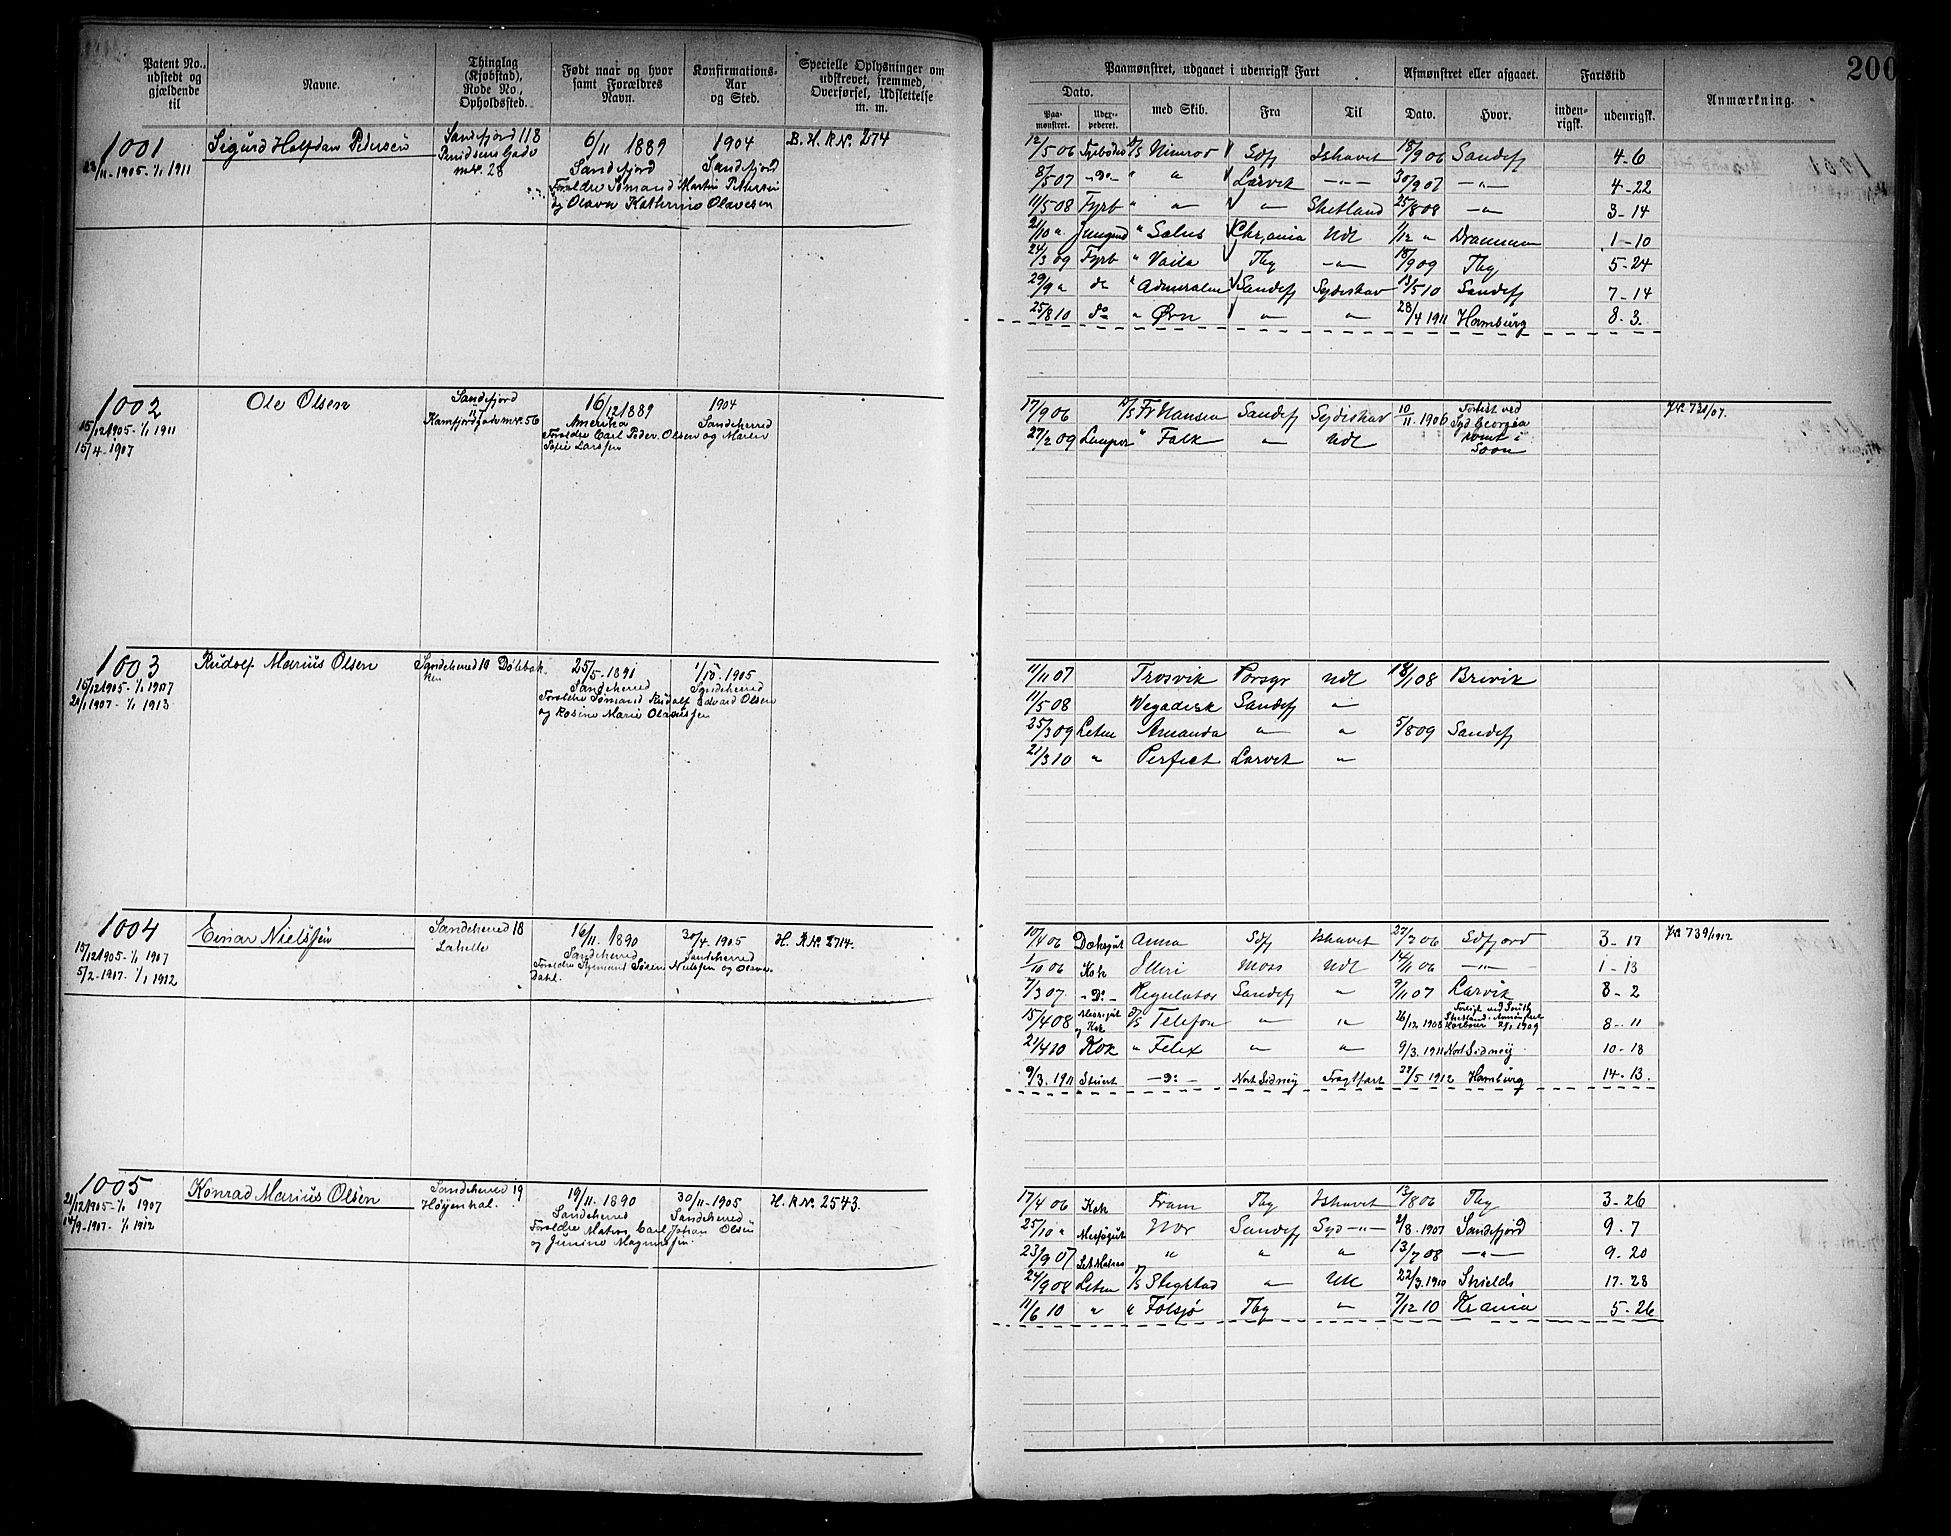 200
Patent No., udstedt og gjældende til
Navne.
Thinglag (Kjøbstad), Rode No., Opholdssted.
Født naar og hvor samt Forældres Navn.
Konfirmations-Aar og Sted.
Specielle Oplysninger om udskrevet, fremmed, Overførsel, Udslettelse m. m.
Paamønstret, udgaaet i udenrigsk Fart
Afmønstret eller afgaaet.
Fartstid
Anmærkning.
Dato.
med Skib.
Fra
Til
Dato.
Hvor.
inden-rigsk.
udenrigsk.
Paa-mønstret.
1001
Sigurd Halfdan Pedersen
Sandefjord 118
6/11 1889
1904
B. H. R No. 274
11-1905-1/1 1911
Sandefjord
Sandefjord
Forældre Sømand Martin Pettersen
og Olava Kathrine Olavesen
12/5 06 Fyrbøder D/S Nimrod Sdfj Ishavet 18/9 06 Sandefj 4-6
8/5 07 -Do- " " Larvik -"- 30/9 07 -"- 4-22
11/5 08 Fyrb " " " Shetland 25/8 08 -"- 3-14
Jungmd " Sælus Chr,ania Udl 1/12 " Drammen 1-10
24/3 09 Fyrb " Vaila Tbg -"- 18/9 09 Tbg 5-24
29/9 " do " Admiralen Sandefj Sydishav 13/5 10 Sandefj 7-14
25/8 10 do " Ørn " " 28/4 1911 Hamburg 8-3.
1002
Ole Olsen
Sandefjord
16/12 1889
1904
15/12 1905-1/1 1911
Amerika
Sandeherred
15/4-1907
Forældre Carl Peder Olsen og Maren
Sofie Larssen
17/9 06 D/S Fr Nansen Sandefj Sydishav 10/11 1906 Forlist ved Syd Georgia
27/2 09 Lemper " Falk " Udl
J.No. 731/07.
1003
Rudolf Marius Olsen
Sandeherred 10
25/5-1891
1/10-1905
15/12 1905-1/1 1907
Sandeherred
Sandeherred
1907-1/1 1913
Forældre Sømand Rudolf Edvard Olsen
og Rosine Marie Olavussen
11/11 07 Trosvik Porsgr Udl 18/1 08 Brevik
11/5 08 Vegadesk Sandefj "
25/3 09 Letm Amanda " " 5/8 09 Sandefj
21/3 10 " Perfect Larvik "
1004
Einar Nielssen
Sandeherred 18
16/11. 1890
30/4.-1905
H. R No. 2714.
15/12 1905-1/1 1907
Lahelle
Sandeherred
Sandeherred
5/2-1907-1/1 1912
Forældre Sømand Søren Nielssen og Olava
Dahl.
10/4 06 Dæksgut Anna Sdfj Ishavet 27/7 06 Sdfjord 3-17
1/10 06 Kok Illeri Moss Udl 14/11 06 -"- 1-13
7/3 07. -Do- Regulator Sandefj " 9/11 07 Larvik 8-2
15/4 08 Messegut og Kok D/S Telefon " " 26/12 1908 Forlist ved South Shetland. 8-11
21/4 10 Kok " Felix " " 9/3. 1911 Nort Sidneij 10-18
9/3. 1911 Stuert -Do- Nort Sidneij Fragtfart 28/5 1912 Hamburg 14-13.
J.No. 739/1912
1005
Konrad Marius Olsen
Sandeherred 19
19/11. 1890
30/11-1905
H. R No. 2543.
21/12 1905-1/1 1907
Høyenhal.
Sandeherred
Sandeherred
14/9-1907-1/1 1912
Forældre Matros Carl Johan Olsen
og Junine Magnussen
17/4 06 Kok Fram Tbg Ishavet 13/8 06 Tbg 3-26
25/10 " Messegut Nor Sandefj Syd-"- 2/8. 1907 Sandefjord 9-7
23/9 07 Let Matros " " " 13/7 08 -"- 9-20
24/9 08 Letm D/S Stigstad " Udl 22/3. 1910 Shields 17-28
11/6 10 " " Folsjø Tbg " 7/12 10 Krania 5-26